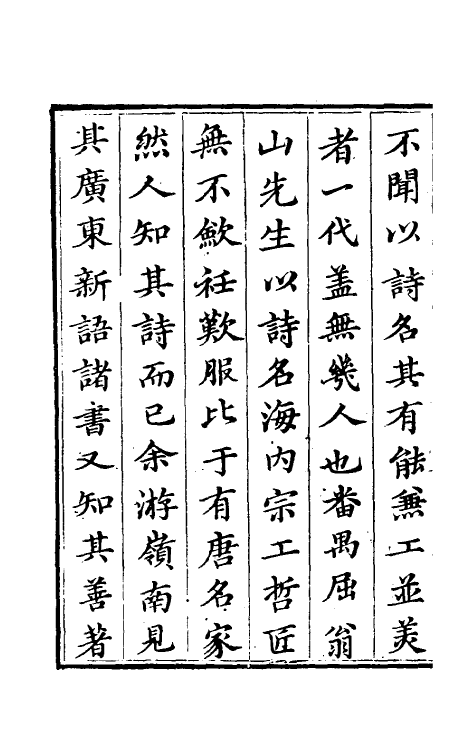 不聞以詩名其有能兼工並美
者一代盖無幾人也番禺屈翁
山先生以詩名海內宗工哲匠
無不歛衽歎服比于有唐名家
然人知其詩而已余游嶺南見
其廣東新語諸書又知其善著